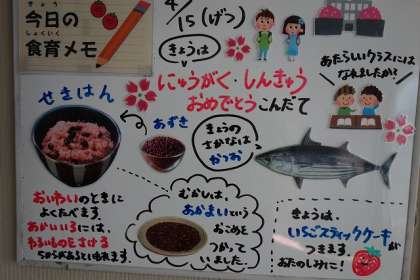 きょう
今日の
しょくいく
食育メモ
4/15(げつ)
きょうは
にゅうがく・しんきゅう
おめでとうこんだて
あたらしいクラスには
なれましたか?
せきはん
あずき
きょうの
さかなは
かつお
おいわいのときに
よくたべます。
あかいいろには、
わるいものをさける
ちからがあるといわれます。
むかしは、
あかまいという
おこめを
つかって
いました。
きょうは、
いちごスティックケーキが
つきます。
おたのしみに!